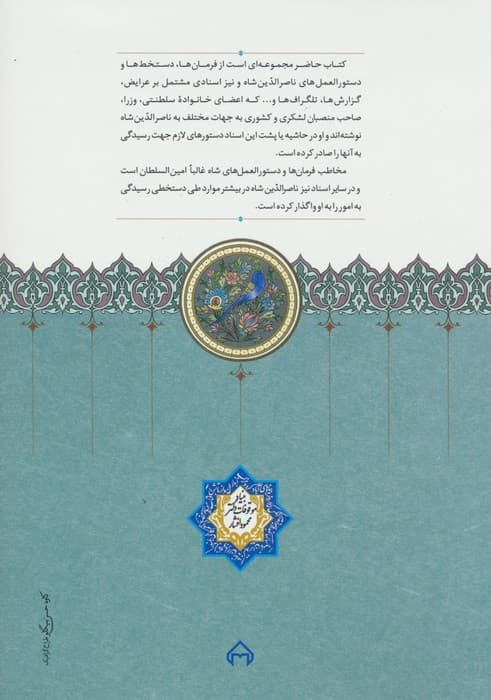 کتاب حاضر مجموعه‌ای است از فرمان‌ها، دستخط‌ها و
دستورالعمل‌های ناصرالدّین شاه و نیز اسنادی مشتمل بر عرایض،
گزارش‌ها، تلگراف‌ها و... که اعضای خانوادهٔ سلطنتی، وزرا،
صاحب منصبان لشکری و کشوری به جهات مختلف به ناصرالدّین شاه
نوشته‌اند و او در حاشیه یا پشت این اسناد دستورهای لازم جهت رسیدگی
به آنها را صادر کرده است.
مخاطب فرمان‌ها و دستورالعمل‌های شاه غالباً امین السلطان است
و در سایر اسناد نیز ناصرالدّین شاه در بیشتر موارد طی دستخطی رسیدگی
به امور را به او واگذار کرده است.
بنیاد
موقوفات دکتر
محمود افشار